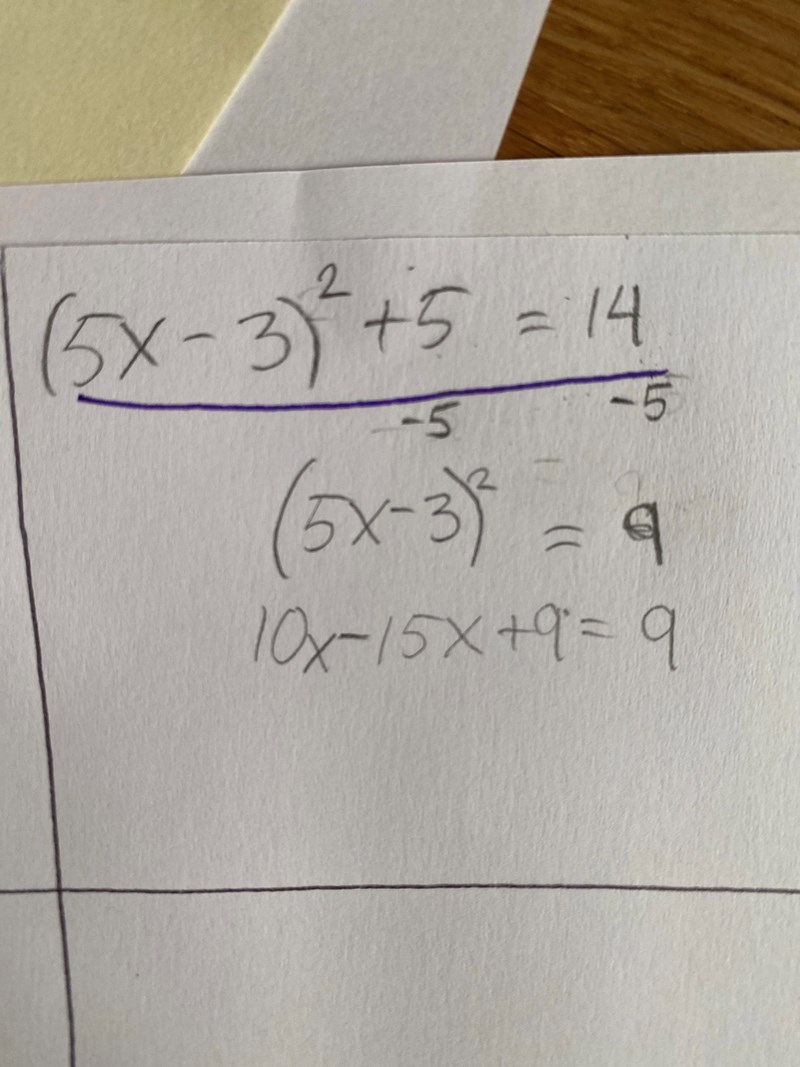 (5x - 3)² + 5 = 14
-5 -5
(5x - 3)² = 9
10x - 15x + 9 = 9